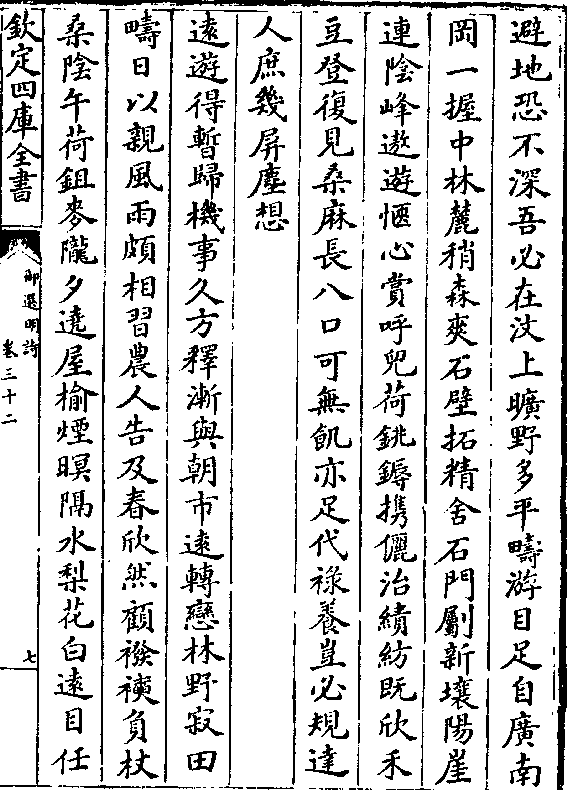 避地恐不深吾必在汶上曠野多平疇游目足自廣南
岡一握中林麓稍森爽石壁拓精舍石門劚新壤陽崖
連陰峰遨遊愜心賞呼兒荷銚鎒携儷治績紡既欣禾
豆登復見桑麻長八口可無飢亦足代祿養豈必規達
人庶幾屏塵想
遠遊得暫歸機事久方釋漸與朝市遠轉戀林野寂田
疇日以親風雨頗相習農人告及春欣然顧襏襫負杖
桑陰午荷鉏麥隴夕遶屋榆煙暝隔水梨花白遠目任
欽定四庫全書
御選明詩
卷三十二
七